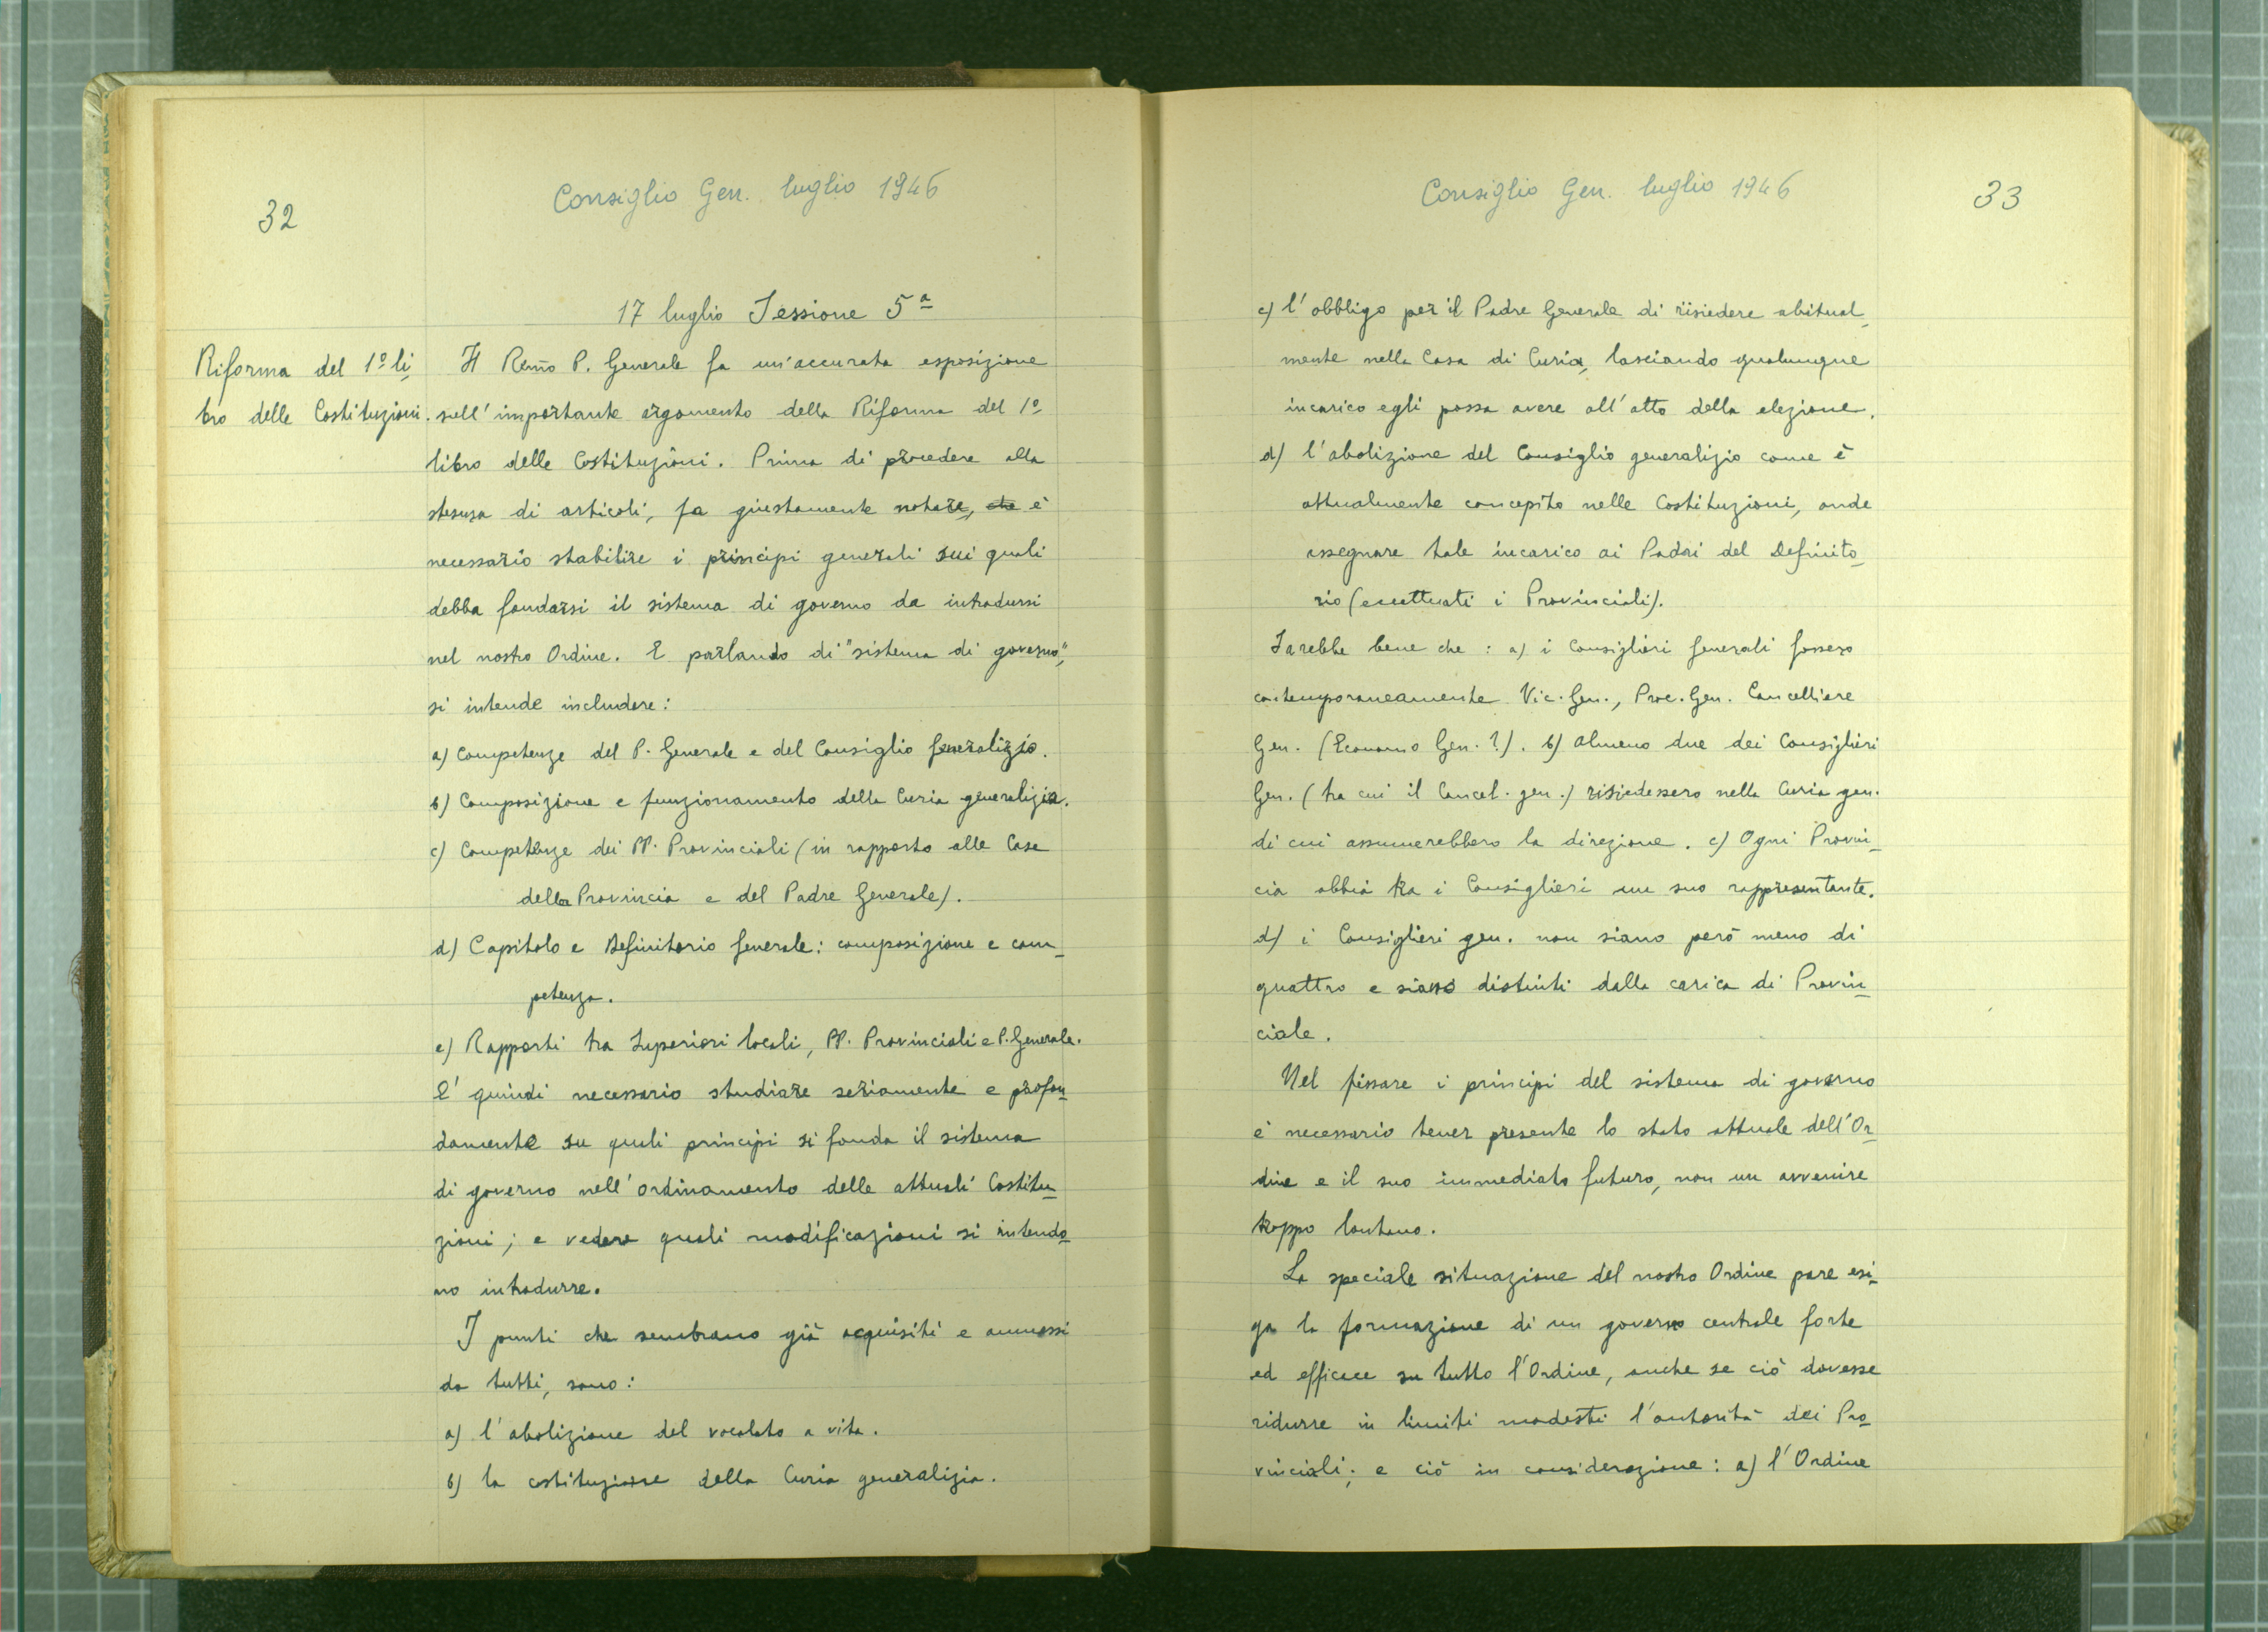 32
Consiglio Gen. luglio 1946
17 luglio Sessione 5ª
Riforma del 1º li-
bro delle Costituzioni.
Il Reṽmo P. Generale fa un'accurata esposizione
sull'importante argomento della Riforma del 1º
libro delle Costituzioni. Prima di procedere alla
stesura di articoli, fa giustamente notare, che è
necessario stabilire i principi generali sui quali
debba fondarsi il sistema di governo da introdursi
nel nostro Ordine. E parlando di "sistema di governo",
si intende includere:
a) Competenze del P. Generale e del Consiglio generalizio.
b) Composizione e funzionamento della Curia generalizia.
c) Competenze dei PP. Provinciali (in rapporto alle Case
della Provincia e del Padre Generale).
d) Capitolo e Definitorio generale: composizione e com-
petenza.
e) Rapporti tra Superiori locali, PP. Provinciali e P. Generale.
E' quindi necessario studiare seriamente e profon-
damente su quali principi si fonda il sistema
di governo nell'ordinamento delle attuali Costitu-
zioni; e vedere quali modificazioni si intendo-
no introdurre.
I punti che sembrano già acquisiti e ammessi
da tutti, sono:
a) l'abolizione del vocalato a vita.
b) la costituzione della Curia generalizia.
Consiglio Gen. luglio 1946
33
c) l'obbligo per il Padre Generale di risiedere abitual-
mente nella Casa di Curia, lasciando qualunque
incarico egli possa avere all'atto della elezione.
d) l'abolizione del Consiglio generalizio come è
attualmente concepito nelle Costituzioni, onde
assegnare tale incarico ai Padri del Definito-
rio (eccettuati i Provinciali).
Sarebbe bene che: a) i Consiglieri generali fossero
contemporaneamente Vic. Gen., Proc. Gen. Cancelliere
Gen. (Economo Gen.?). b) almeno due dei Consiglieri
Gen. (tra cui il Cancel. gen.) risiedessero nella Curia gen.
di cui assumerebbero la direzione. c) Ogni Provin-
cia abbia tra i Consiglieri un suo rappresentante.
d) i Consiglieri gen. non siano però meno di
quattro e siano distinti dalla carica di Provin-
ciale.
Nel fissare i principi del sistema di governo
è necessario tener presente lo stato attuale dell'Or-
dine e il suo immediato futuro, non un avvenire
troppo lontano.
La speciale situazione del nostro Ordine pare esi-
ga la formazione di un governo centrale forte
ed efficace su tutto l'Ordine, anche se ciò dovesse
ridurre in limiti modesti l'autorità dei Pro-
vinciali; e ciò in considerazione: a) l'Ordine